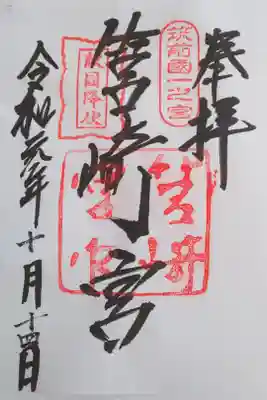 奉拝
筑前國一之宮
筥崎宮
敵國降伏
筥崎宮印
令和元年十月十四日